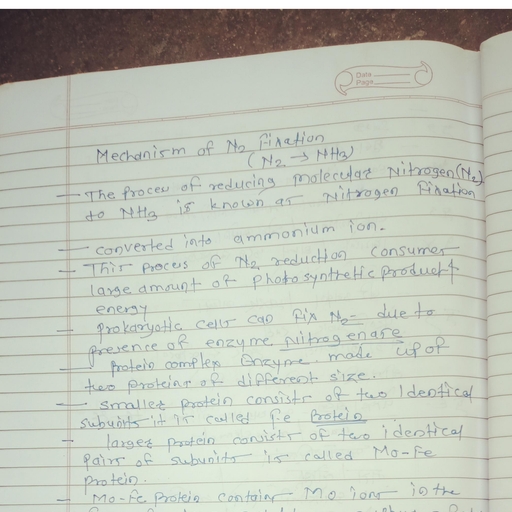 Data
Page
Mechanism of N2 Fixation
(N2 → NH3)
- The process of reducing molecular Nitrogen (N2)
to NH3 is known as Nitrogen Fixation
- converted into ammonium ion.
- This process of N2 reduction consumes
large amount of photosynthetic product &
energy
- prokaryotic cells can fix N2 - due to
presence of enzyme nitrogenase
- protein complex Enzyme made up of
two proteins of different size.
- smaller protein consists of two Identical
subunits it is called fe protein
- larger protein consists of two identical
pairs of subunits is called Mo-Fe
protein.
- Mo-Fe protein contains Mo ions in the